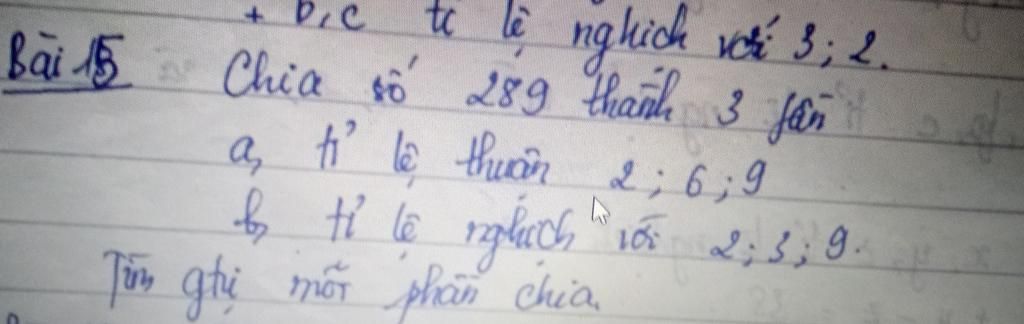 + b, c tỉ lệ nghịch với 3; 2.
Bài 15 Chia số 289 thành 3 fần
a, tỉ lệ thuận 2; 6; 9
b, tỉ lệ nghịch với 2; 3; 9.
Tìm ghị mỗi phần chia.